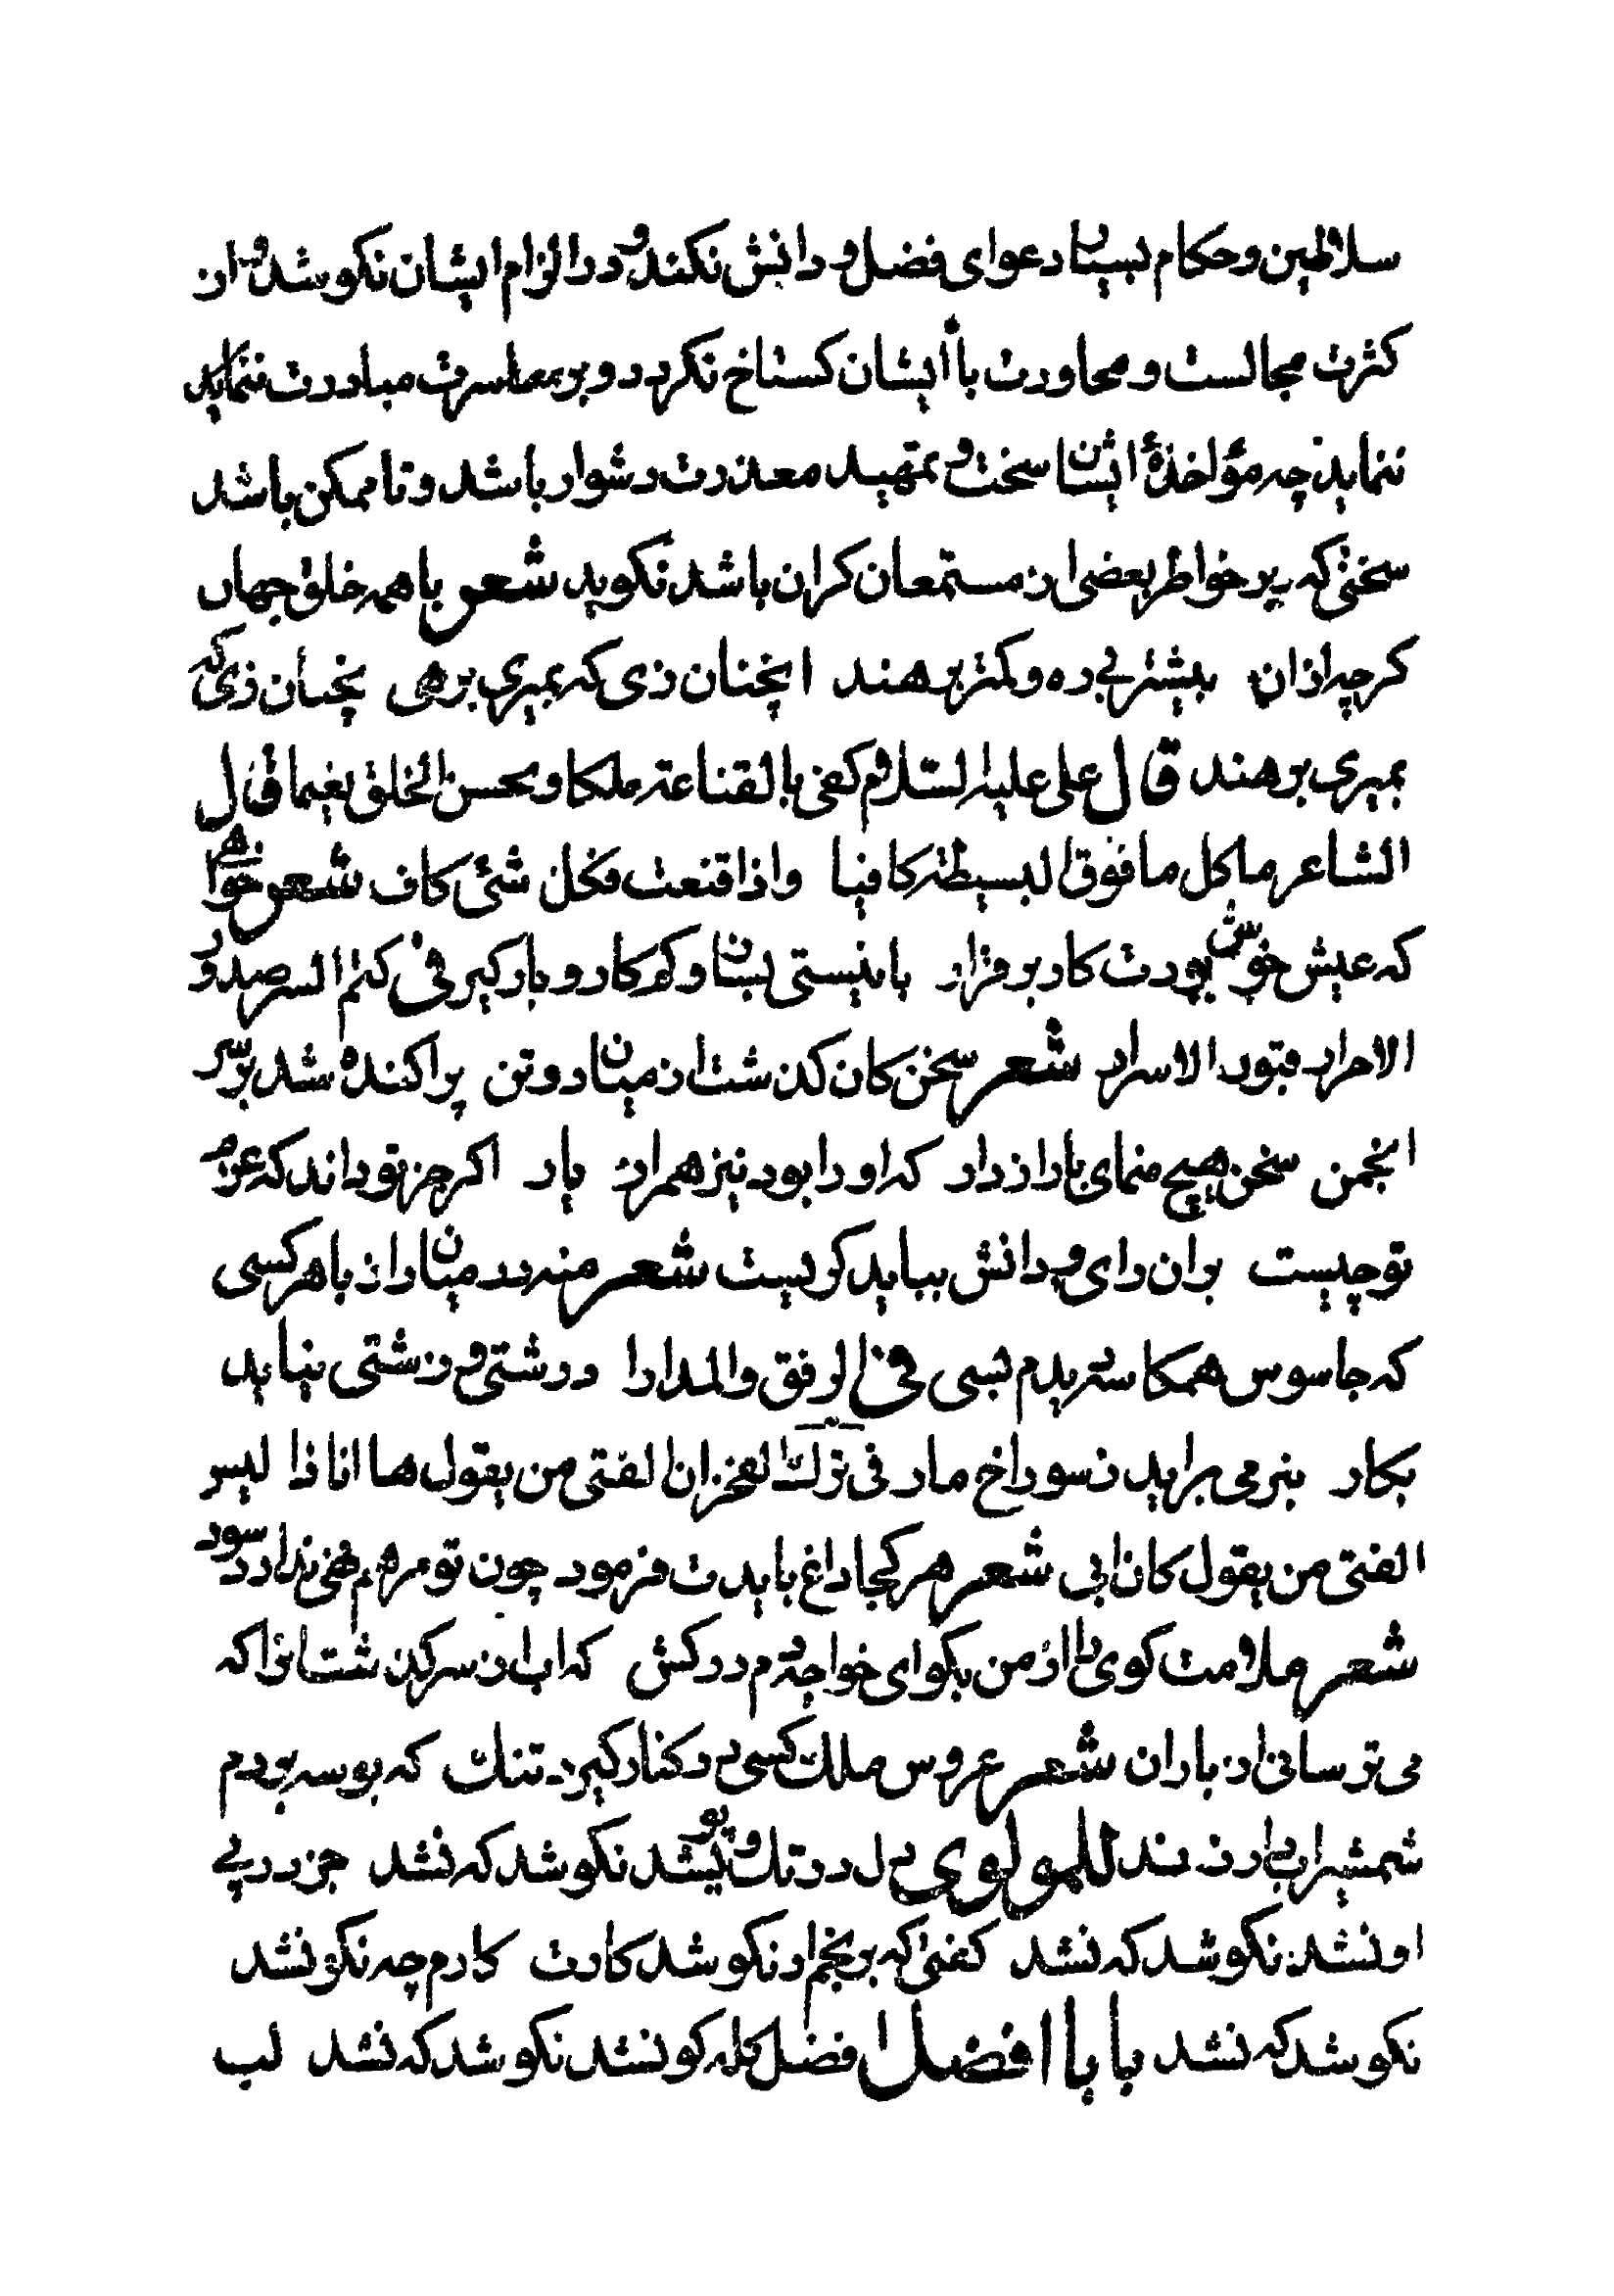 سلاطین و حکام بسیار دعوای فضل و دانش نکند و در الزام ایشان نکوشد و از
کثرت مجالست و محاورت با ایشان کستاخ نکردد و بر معاسرت مبادرت ننماید
ننماید چه مؤاخذهٔ ایشان سخت و تمهید معذرت دشوار باشد و تا ممکن باشد
سخنی که بر خواطر بعضی از مستمعان کران باشد نکوید شعر با همه خلق جهان
کرچه ازان بیشتر بی ره و کمتر برهند انچنان زی که بمیری برهی نچنان زی که
بمیری برهند قال علی علیه السلام کفی بالقناعة ملکا و بحسن الخلق نعیما قال
الشاعر ما کل ما فوق البسیطة کافیا واذا قنعت فکل شئ کاف شعر خواهی
که عیش خوش بودت کار بر قرار با نیستی بساز و کم کار و بار کیر فی کتم السر صدور
الاحرار قبور الاسرار شعر سخن کان کذشت از میان دو تن پراکنده شد بر سر
انجمن سخن هیچ منمای با رازدار که او را بود نیز همراز یار اکر جز تو داند که عزم
تو چیست بران رای و دانش بباید کریست شعر منه در میان راز با هر کسی
که جاسوس همکاسه دیدم بسی فی الرفق والمدارا درشتی و زشتی نیاید
بکار بنرمی براید ز سوراخ مار فی ترک الفخر ان الفتی من یقول ها انا ذا لیس
الفتی من یقول کان ابی شعر هر کجا داغ بایدت فرمود چون تو مرهم نهی ندارد سود
شعر ملامت کوی را از من بکو ای خواجه دم درکش که اب از سر کذشت انرا که
می ترسانی از باران شعر عروس ملک کسی در کنار کیرد تنک که بوسه بر دم
شمشیر ابدار زند للمولوی دل در تک و پوی شد نکو شد که نشد جز در پی
او نشد نکو شد که نشد کفتی که برنجم ار نکو شد کارت کارم چه نکو نشد
نکو شد که نشد بابا افضل افضل کله کو نشد نکو شد که نشد لب